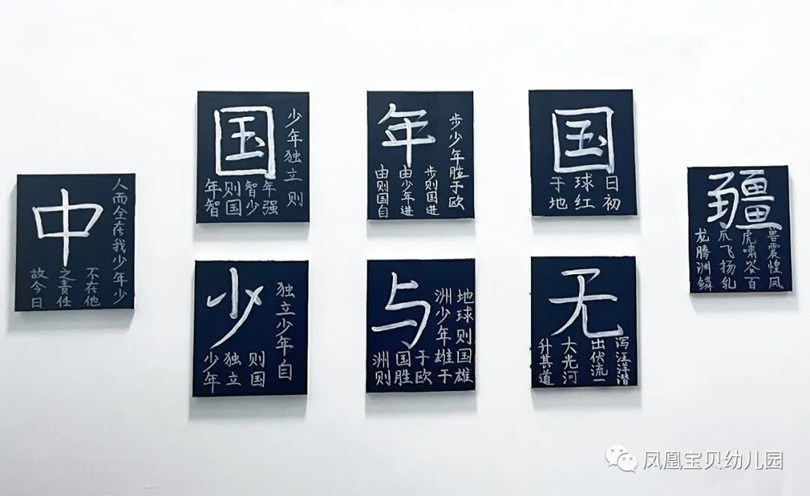 中
故今日
之责任
不在他
人而全在我少年少
国
年智
则国
智少
年强
少年独立则
少
少年
独立
则国
独立少年自
年
由则国自
由少年进
步则国进
步少年胜于欧
与
洲则
国胜
于欧
洲少年雄于
地球则国雄
国
于地
球红
日初
无
升其道
大光河
出伏流一
泻汪洋潜
疆
龙腾渊鳞
爪飞扬乳
虎啸谷百
兽震惶风
凤凰宝贝幼儿园